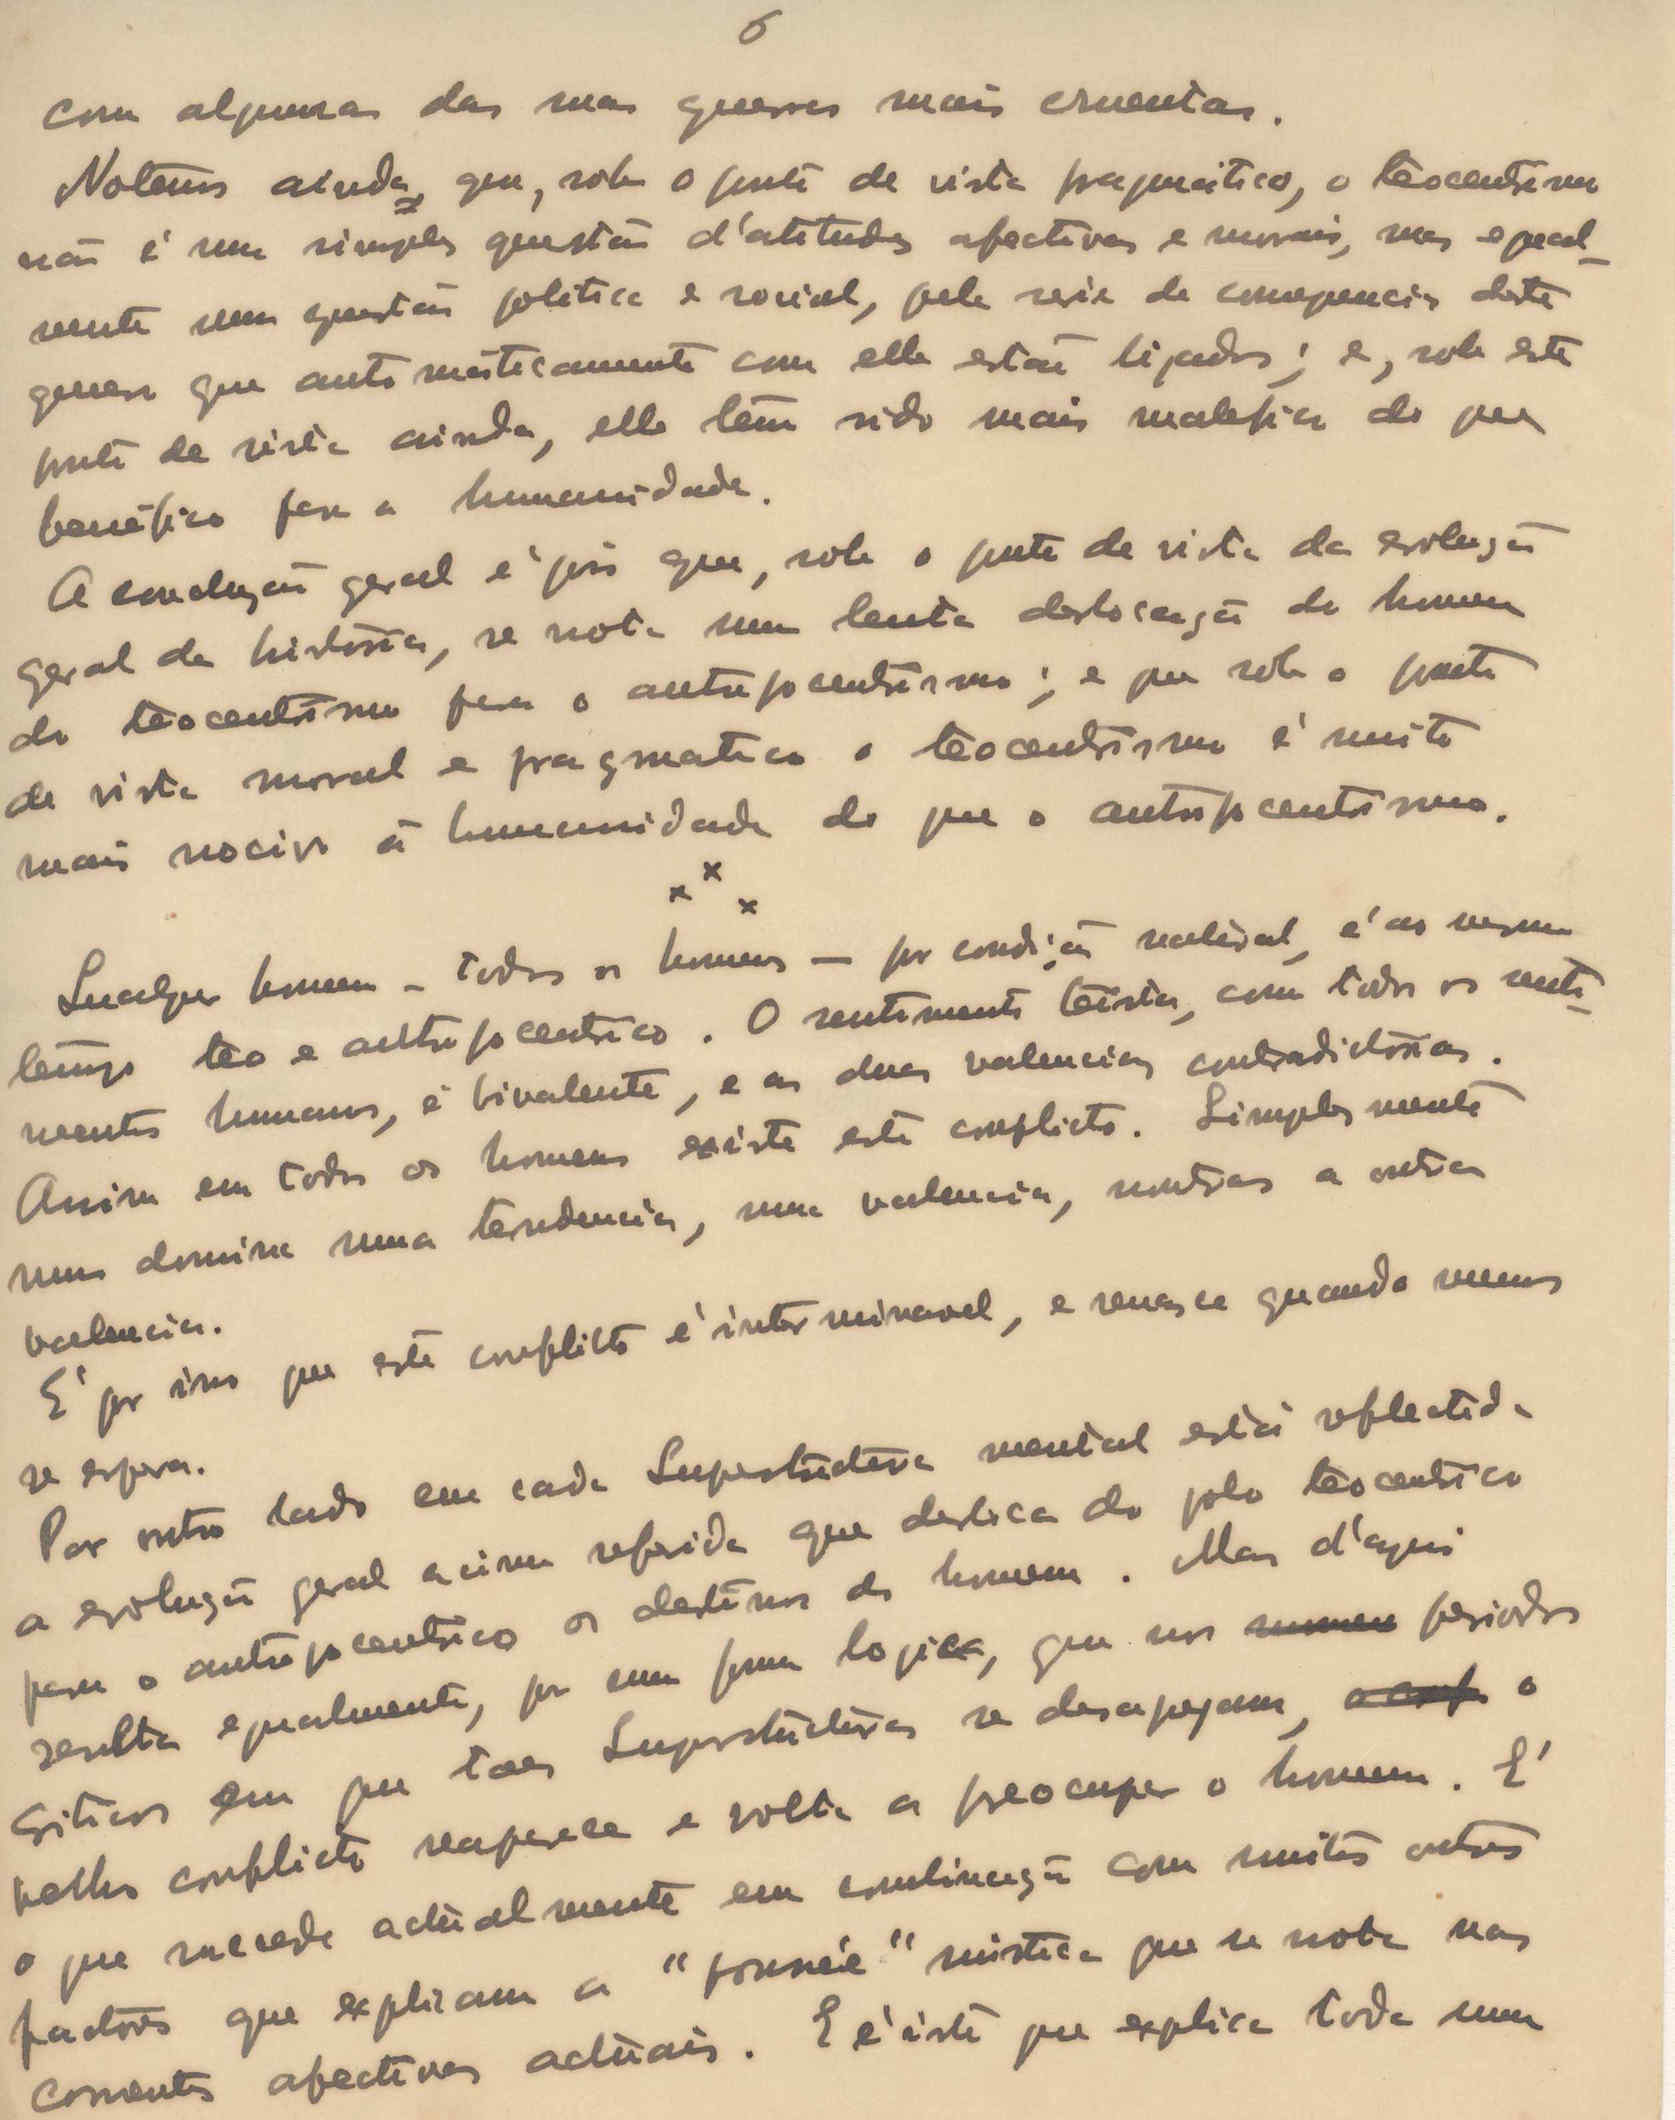 6
com algumas das suas guerras mais cruentas.
Notemos ainda, que, sob o ponto de vista pragmático, o teocentrismo
não é uma simples questão d'atitudes afectivas e morais, mas egual-
mente uma questão politica e social, pela serie de consequencias deste
genero que automáticamente com elle estão ligados; e, sob este
ponto de vista ainda, elle tem sido mais malefico do que
benéfico para a humanidade.
A conclusão geral é pois que, sob o ponto de vista da evolução
geral da história, se nota uma lenta deslocação do homem
do teocentrismo para o antropocentrismo; e que sob o ponto
de vista moral e pragmatico o teocentrismo é muito
mais nocivo á humanidade do que o antropocentrismo.
x x x
Qualquer homem - todos os homens - por condição natural, é ao mesmo
tempo teo e antropocentrico. O sentimento teista, com todos os senti-
mentos humanos, é bivalente, e as duas valencias contradictórias.
Assim em todos os homens existe este conflicto. Simplesmente
nuns domina uma tendencia, uma valencia, noutras a outra
valencia.
E' por isso que este conflicto é interminavel, e renasce quando menos
se espera.
Por outro lado em cada Superstructura mental está reflectida
a evolução geral acima referida que desloca do polo teocentrico
para o antropocentrico os destinos do homem. Mas d'aqui
resulta egualmente, por uma forma logica, que nos periodos
criticos em que taes Superstructuras se desagregam, o
velho conflicto reaparece e volta a preocupar o homem. E'
o que succede actualmente em combinação com muitos outros
factores que explicam a "poussée" mistica que se nota nas
correntes afectivas actuais. E é isto que explica toda uma